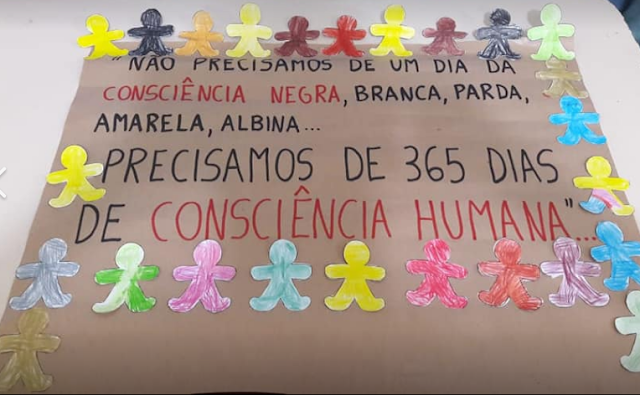 "NÃO PRECISAMOS DE UM DIA DA
CONSCIÊNCIA NEGRA, BRANCA, PARDA,
AMARELA, ALBINA...
PRECISAMOS DE 365 DIAS
DE CONSCIÊNCIA HUMANA"...